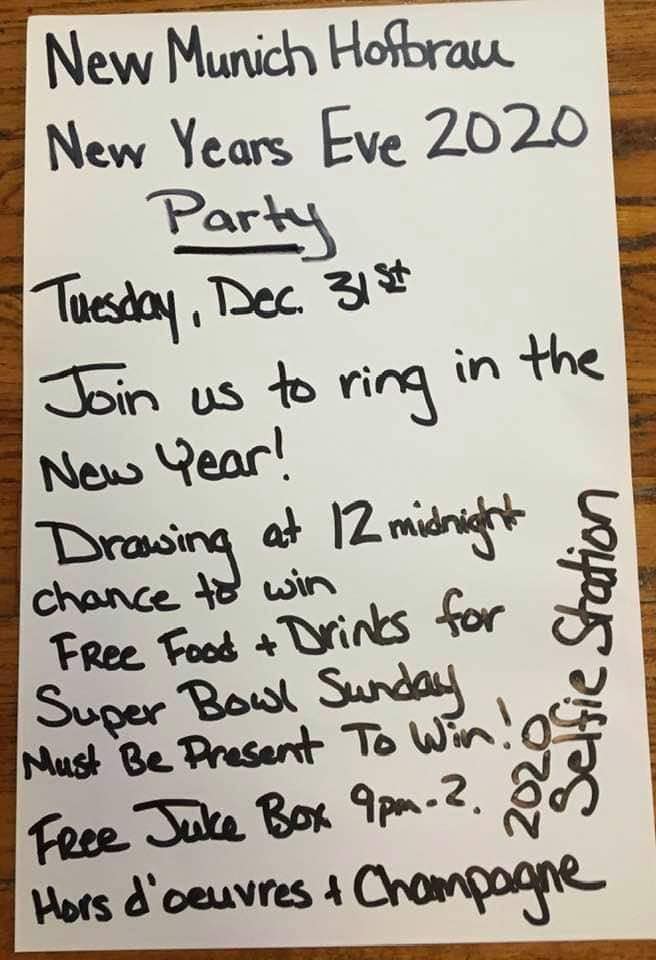 New Munich Hofbrau
New Years Eve 2020
Party
Tuesday, Dec. 31st
Join us to ring in the
New Year!
Drawing at 12 midnight
chance to win
Free Food + Drinks for
Super Bowl Sunday
Must Be Present To Win!
Free Juke Box 9pm-2.
Hors d'oeuvres + Champagne
2020
Selfie Station